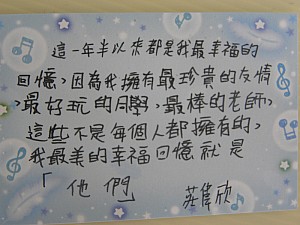 這一年半以來都是我最幸福的
回憶，因為我擁有最珍貴的友情
，最好玩的同學，最棒的老師，
這些不是每個人都擁有的，
我最美的幸福回憶就是
「他們」 莊雋欣